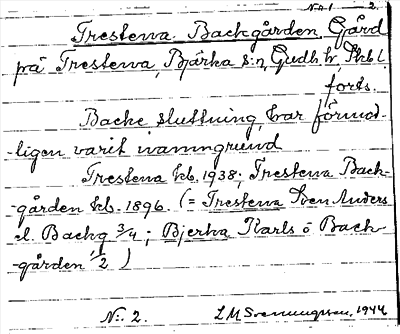 N:r 1 — 2.
Trestena Backgården, Gård
på Trestena, Bjärka s:n, Gudh. hr, Skbl.
forts.
Backe sluttning, har förmod-
-ligen varit namngrund
Trestena kb. 1938; Trestena Back-
-gården kb. 1896. (= Trestena Sven Anders
el. Backg 3/4; Bjerka Karls o Back-
-gården 1/2)
N:r 2. L M Svenungsson, 1944